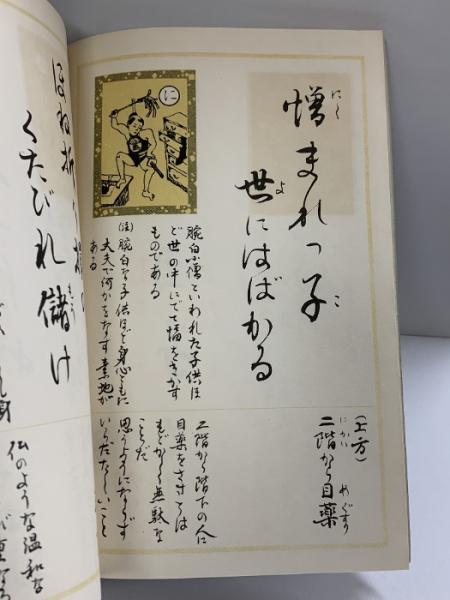 憎まれっ子
世にはばかる
に
腕白小僧といわれた子供ほ
ど世の中にでて幅をきかす
ものである
(注)腕白な子供ほど身心ともに
大夫で何かをなす素地が
ある
(上方)
二階から目薬
二階から階下の人に
目薬をさすことは
もどかしく無駄な
ことだ
思うようにならず
いらだたしいこと
ほね折り損の
くたびれ儲け
仏のような温和な